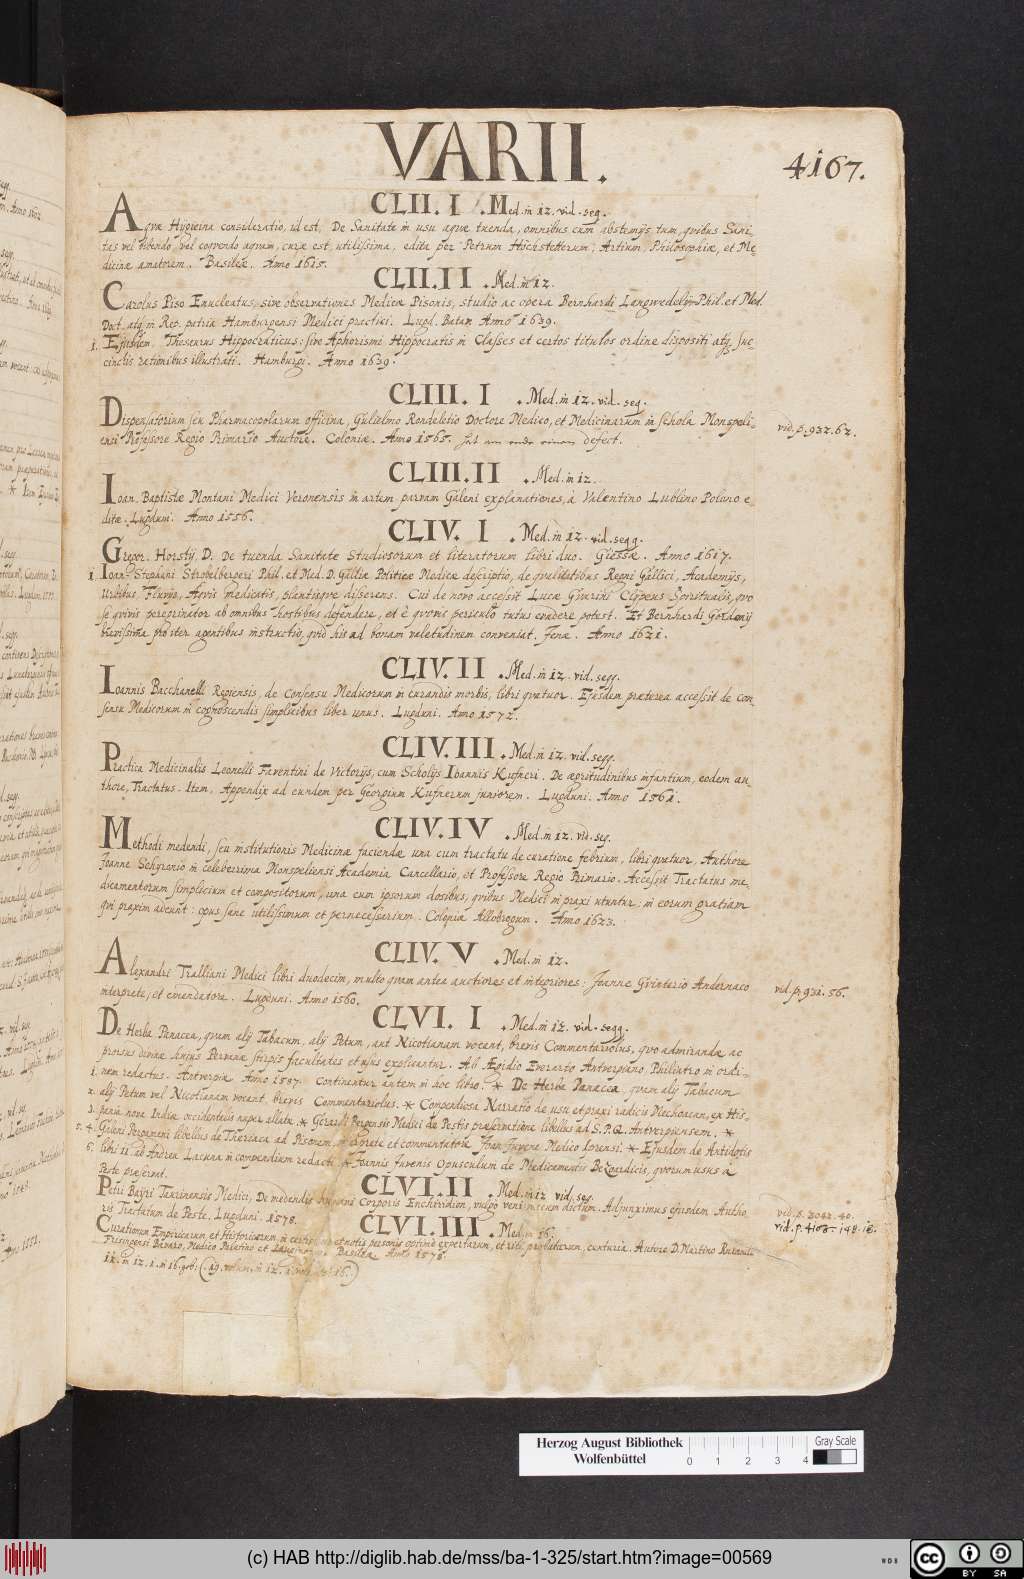 VARII.
4167.
CLII. I . Med. in 12. vid. seg.
Aquæ Hygieina consideratio, id est, De Sanitate in usu aquæ tuenda, omnibus cùm abstemijs tum, quibus Sani-
tas vel bibendo, vel convendo aquam, curæ est utilissima, edita per Petrum Höchstetterum, Artium, Philosophiæ, et Me
dicinæ amatorem. Basileæ. Anno 1615.
CLII. II . Med. in 12.
Carolus Piso Enucleatus, sive observationes Medicæ Pisonis, studio ac opera Bernhardi Langwedelij Phil. et Med.
Doct. atq; in Rep. patria Hamburgensi Medici practici. Lugd. Batav. Anno 1639.
1. Ejusdem. Thesaurus Hippocraticus: sive Aphorismi Hippocratis in Classes et certos titulos ordine dispositi atq; suc-
cinctis rationibus illustrati. Hamburgi. Anno 1639.
CLIII. I . Med. in 12. vid. seg.
Dispensatorium seu Pharmacopolarum officina, Gulielmo Rondeletio Doctore Medico, et Medicinarum in schola Monspeli-
ensi Professore Regio Primario Autore. Coloniæ. Anno 1565. defect.
vid. p. 932. 62.
CLIII. II . Med. in 12.
Ioan. Baptistæ Montani Medici Veronensis in artem parvam Galeni explanationes, à Valentino Lublino Polono e
ditæ. Lugduni. Anno 1556.
CLIV. I . Med. in 12. vid. segg.
Gregor. Horstij D. De tuenda Sanitate Studiosorum et literatorum libri duo. Giessæ. Anno 1617.
1. Ioan. Stephani Strobelbergeri Phil. et Med. D. Galliæ Politicæ Medicæ descriptio, de qualitatibus Regni Gallici, Academijs,
Urbibus, Fluvijs, Aquis medicatis, plantisque disserens. Cui de novo accessit Lucæ Gaurini Clypeus Spiritualis, quo
se quivis peregrinator ab omnibus hostibus defendere, et è quovis periculo tutus evadere potest. Et Bernhardi Gordonij
brevissima pro iter agentibus instructio, quid his ad bonam valetudinem conveniat. Jenæ. Anno 1621.
CLIV. II . Med. in 12. vid. segg.
Ioannis Bacchanelli Regiensis, de Consensu Medicorum in curandis morbis, libri quatuor. Ejusdem præterea accessit de con
sensu Medicorum in cognoscendis simplicibus liber unus. Lugduni. Anno 1572.
CLIV. III . Med. in 12. vid. segg.
Practica Medicinalis Leonelli Faventini de Victorijs, cum Scholijs Ioannis Kufneri. De ægritudinibus infantium, eodem au
thore, Tractatus. Item. Appendix ad eundem per Georgium Kufnerum juniorem. Lugduni. Anno 1561.
CLIV. IV . Med. in 12. vid. seg.
Methodi medendi, seu institutionis Medicinæ faciendæ una cum tractatu de curatione febrium, libri quatuor. Authore
Joanne Schyronio in celeberrima Monspeliensi Academia Cancellario, et Professore Regio Primario. Accessit Tractatus me
dicamentorum simplicium et compositorum, una cum ipsorum dosibus, quibus Medici in praxi utuntur: in eorum gratiam
qui praxim adeunt: opus sane utilissimum et pernecessarium. Coloniæ Allobrogum. Anno 1623.
CLIV. V . Med. in 12.
Alexandri Tralliani Medici libri duodecim, multo quam antea auctiores et integriores: Joanne Guinterio Andernaco
interprete, et emendatore. Lugduni. Anno 1560.
vid. p. 931. 56.
CLVI. I . Med. in 12. vid. segg.
De Herba Panacea, quam alij Tabacum, alij Petum, aut Nicotianam vocant, brevis Commentariolus, quo admirandæ ac
prorsus divinæ hujus Peruanæ stirpis facultates et usus explicantur. Ab Ægidio Everarto Antverpiano Philiatro in ordi-
nem redactus. Antverpiæ. Anno 1587. Continentur autem in hoc libro. * De Herba Panacea, quam alij Tabacum
1. alij Petum vel Nicotianam vocant, brevis Commentariolus. * Compendiosa Narratio de usu et praxi radicis Mechoacan, ex His-
2. 3. pania nova Indiæ occidentalis nuper allatæ. * Gerardi Bergensis Medici de Pestis præservatione libellus ad S. P. Q. Antverpiensem. *
5. 4. Galeni Pergameni libellus de Theriaca ad Pisonem, interprete et commentatore Joan. Juvene Medico Iprensi. * Ejusdem de Antidotis
6. libri II. ab Andrea Lacuna in compendium redacti. * Joannis Juvenis Opusculum de Medicamentis Bezoardicis, quorum usus à
Peste præservat.
CLVI. II . Med. in 12 vid. seg.
Petri Bayri Taurinensis Medici, De medendis humani Corporis Enchiridion, vulgo veni mecum dictum. Adjunximus ejusdem Autho
ris Tractatum de Peste. Lugduni. 1578.
vid. p. 3082. 40.
CLVI. III . Med. in 16.
vid. p. 4103. 148. 18.
Curationum Empiricarum et Historicarum in certis locis et notis personis optimè expertarum, et ritè probatarum, centuria. Autore D. Martino Rulando
Frisingensi Bavaro, Medico Palatino Basileæ. Anno 1578.
11. in 12. 1. in 16.
Herzog August Bibliothek
Wolfenbüttel
0 1 2 3 4
Gray Scale
(c) HAB http://diglib.hab.de/mss/ba-1-325/start.htm?image=00569
WDB
cc BY SA